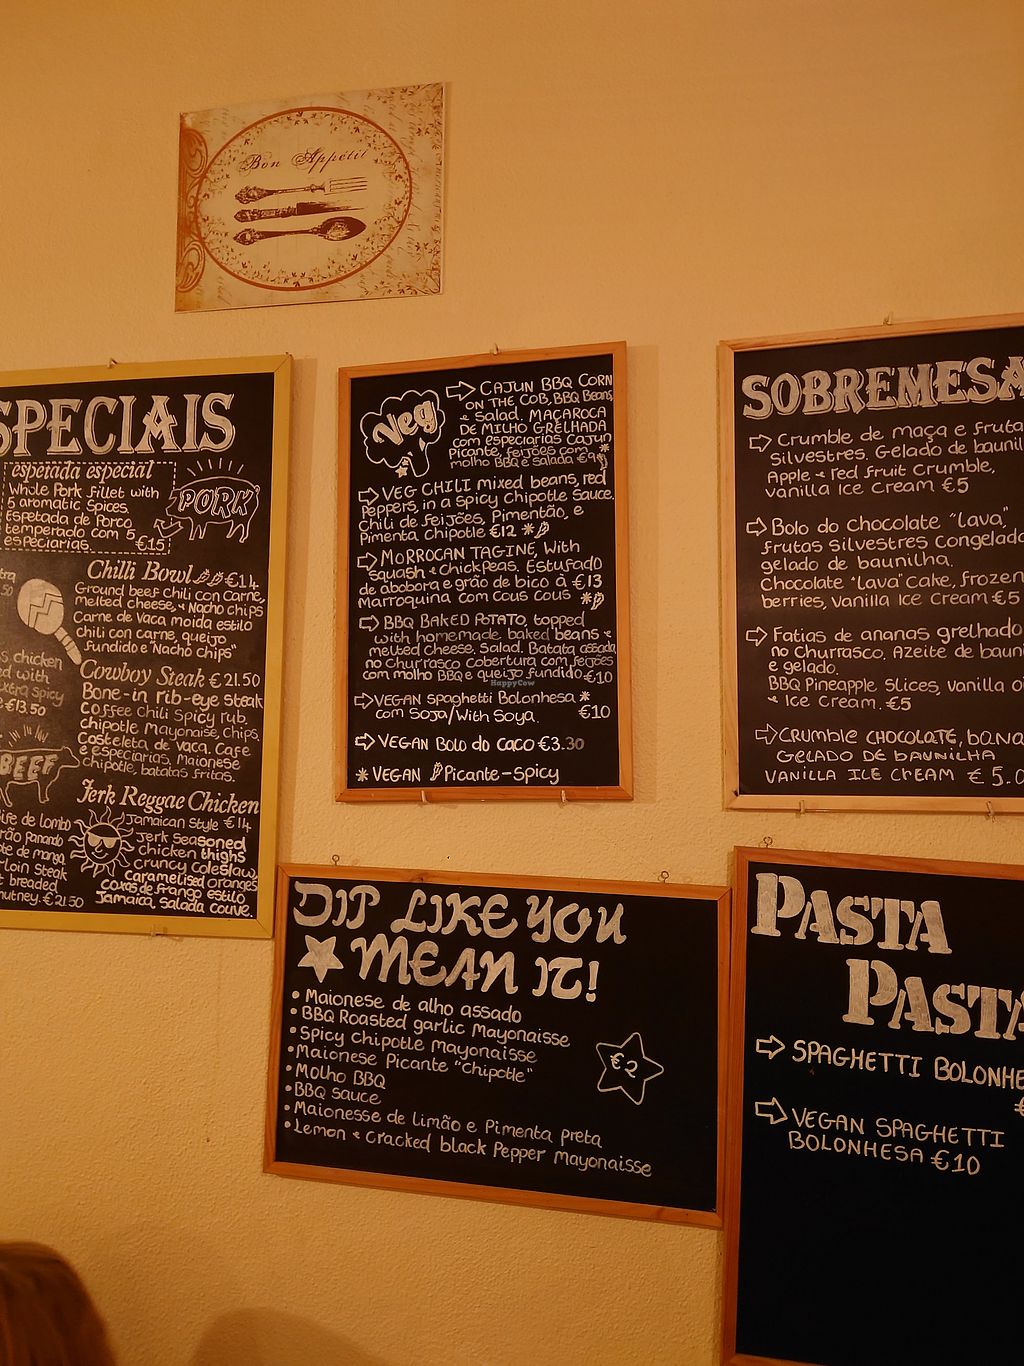 Bon Appétit
SPECIAIS
espetada especial
Whole Pork fillet with
5 aromatic Spices.
Espetada de Porco
temperado com 5
especiarias. €15
PORK
Chilli Bowl €14
Ground beef Chili con Carne,
melted cheese, + Nacho chips
Carne de Vaca moida estilo
chili con carne, queijo
fundido e "Nacho chips"
Cowboy Steak €21.50
Bone-in rib-eye steak
Coffee Chili Spicy rub.
Chipotle Mayonaise, Chips.
Costeleta de Vaca. Cafe
e especiarias. Maionese
chipotle, batatas fritas.
chicken
with
xtra spicy
€13.50
BEEF
Jerk Reggae Chicken
Jamaican Style €14
Jerk Seasoned
chicken thighs
Cruncy Coleslaw,
caramelised oranges
coxas de frango estilo
Jamaica, Salada couve.
ife de lombo
panando
de manga
loin Steak
breaded
utney. €21.50
Veg
CAJUN BBQ CORN
ON THE COB, BBQ Beans
+ Salad. MAÇAROCA
DE MILHO GRELHADA
com especiarias Cajun
Picante, feijões com *
molho BBQ e salada €9
VEG CHILI mixed beans, red
Peppers, in a spicy chipotle Sauce.
Chili de feijões, Pimentão, e
Pimenta Chipotle €12 *
MORROCAN TAGINE, With
squash + Chickpeas. Estufado
de abobora e grão de bico à €13
Marroquina com cous cous *
BBQ BAKED POTATO, topped
with homemade baked beans +
melted Cheese. Salad. Batata assada
no Churrasco cobertura com feijões
com molho BBQ e queijo fundido €10
VEGAN spaghetti Bolonhesa *
com Soja/With Soya. €10
VEGAN Bolo do caco €3.30
* VEGAN Picante-Spicy
HappyCow
SOBREMESA
Crumble de maça e fruta
Silvestres. Gelado de baunil
Apple + red fruit Crumble,
vanilla Ice Cream €5
Bolo do chocolate "lava"
frutas silvestres congelado
gelado de baunilha.
Chocolate "lava" cake, frozen
berries, vanilla Ice Cream €5
Fatias de ananas grelhado
no Churrasco. Azeite de baun
e gelado.
BBQ Pineapple Slices, vanilla o
+ Ice Cream. €5
Crumble CHOCOLATE, bana
GELADO DE BAUNILHA
VANILLA ICE CREAM € 5.0
DIP LIKE YOU
MEAN IT!
• Maionese de alho assado
• BBQ Roasted garlic Mayonaisse
• Spicy chipotle mayonaisse
• Maionese Picante "chipotle"
• Molho BBQ
• BBQ sauce
• Maionesse de limão e Pimenta preta
• Lemon + cracked black Pepper Mayonaisse
€2
PASTA
PASTA
SPAGHETTI BOLONHE
VEGAN SPAGHETTI
BOLONHESA €10